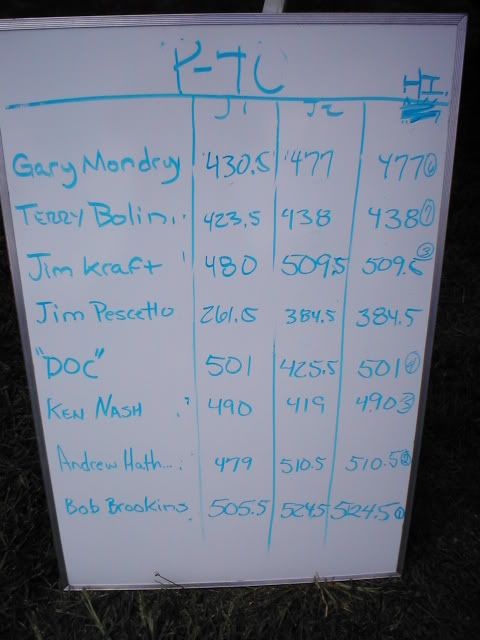 P-70
J1 J2 JJ.
Gary Mondry 430.5 477 477 ⑥
TERRY Bolin... 423.5 438 438 ⑦
Jim Kraft 480 509.5 509.5 ③
Jim Pescetto 261.5 384.5 384.5
"DOC" 501 425.5 501 ④
KEN NASH 490 419 490
Andrew Hath... 479 510.5 510.5 ②
Bob Brookins 505.5 524.5 524.5 ①